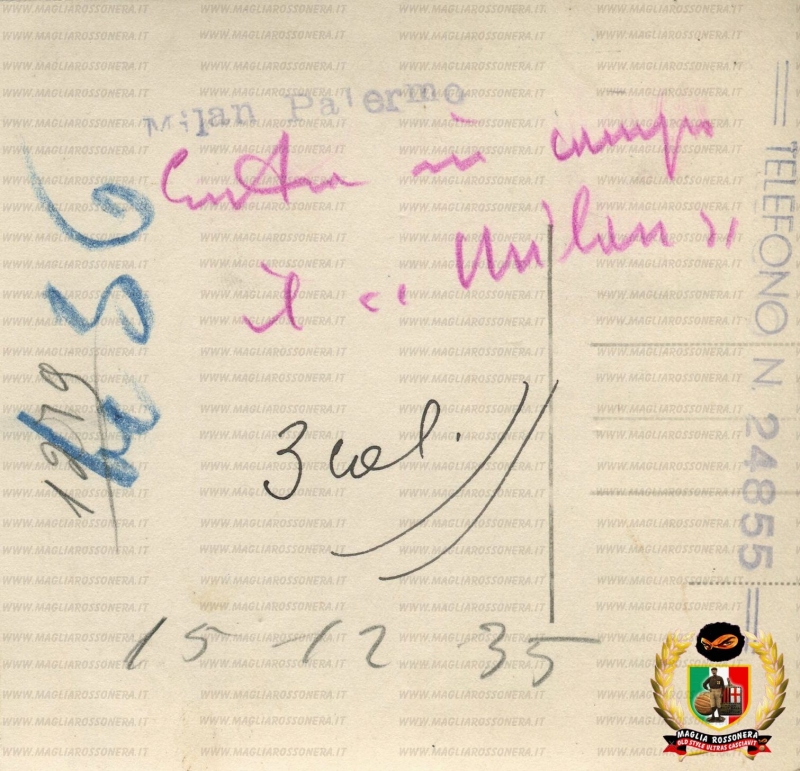 Milan Palermo
Entra in campo
il "Milan"
3 col.
15-12 35
1279
56
TELEFONO N. 24855
WWW.MAGLIAROSSONERA.IT
MAGLIA ROSSONERA
OLD STYLE ULTRAS CASCIAVIT